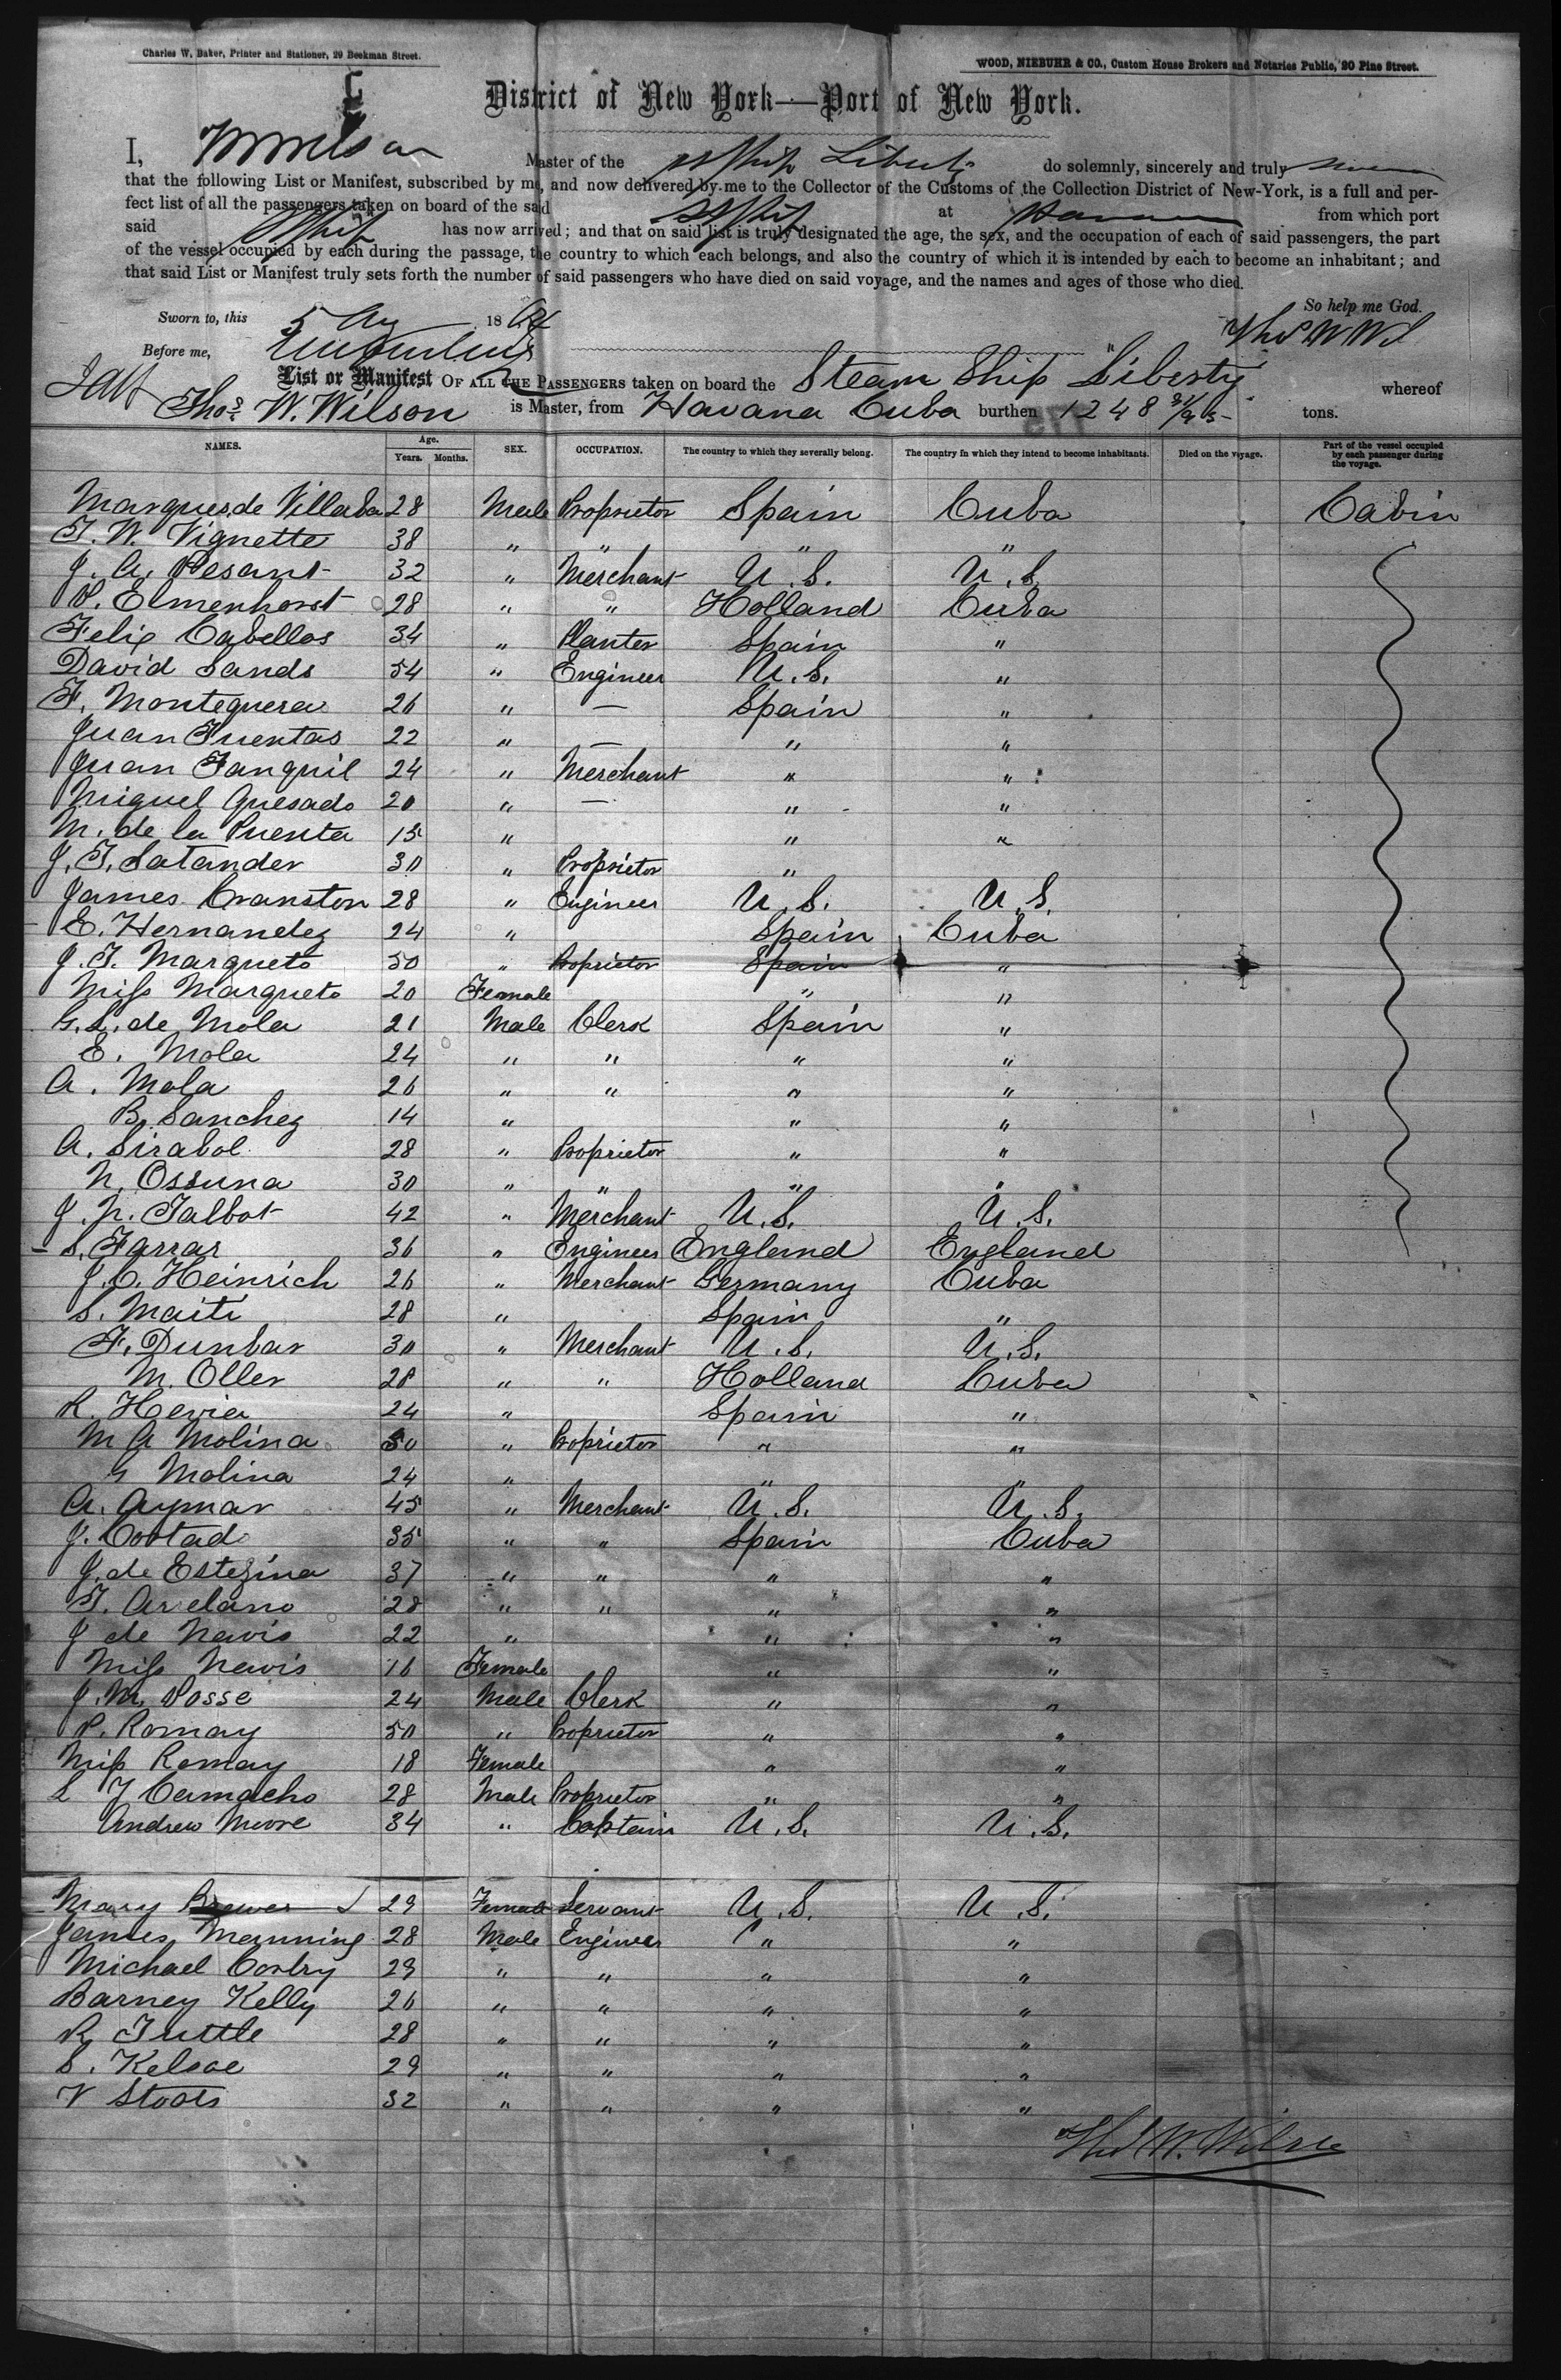 Charles W. Baker, Printer and Stationer, 29 Beekman Street.
WOOD, NIEBUHR & CO., Custom House Brokers and Notaries Public, 20 Pine Street.
District of New York—Port of New York.
I, Master of the do solemnly, sincerely and truly
that the following List or Manifest, subscribed by me, and now delivered by me to the Collector of the Customs of the Collection District of New-York, is a full and per-
fect list of all the passengers taken on board of the said at from which port
said has now arrived; and that on said list is truly designated the age, the sex, and the occupation of each of said passengers, the part
of the vessel occupied by each during the passage, the country to which each belongs, and also the country of which it is intended by each to become an inhabitant; and
that said List or Manifest truly sets forth the number of said passengers who have died on said voyage, and the names and ages of those who died.
So help me God.
Sworn to, this 5 18
Before me,
List or Manifest OF ALL THE PASSENGERS taken on board the Steam Ship "Liberty" whereof
Thos W. Wilson is Master, from Havana Cuba burthen 1248 tons.
NAMES. Age. Years. Months. SEX. OCCUPATION. The country to which they severally belong. The country in which they intend to become inhabitants. Died on the voyage. Part of the vessel occupied by each passenger during the voyage.
Marques de Villalba 28 Male Proprietor Spain Cuba Cabin
T. W. Vignette 38 " " " "
J. A. Pesant 32 " Merchant U.S. U.S.
P. Elmenhorst 28 " " Holland Cuba
Felix Cabellos 34 " Planter Spain "
David Sands 54 " Engineer U.S. "
F. Montequera 26 " — Spain "
Juan Fuentas 22 " — " "
Juan Fanquil 24 " Merchant " "
Miguel Quesado 20 " — " "
M. de la Puenta 15 " " "
J. T. Satander 30 " Proprietor "
James Cranston 28 " Engineer U.S. U.S.
E. Hernandez 24 " Spain Cuba
J. T. Marqueto 50 " Proprietor Spain "
Miss Marqueto 20 Female " "
G. L. de Mola 21 Male Clerk Spain "
E. Mola 24 " " " "
A. Mola 26 " " " "
B. Sanchez 14 " " "
A. Sirabol 28 " Proprietor " "
N. Ossuna 30 " " " "
J. N. Talbot 42 " Merchant U.S. U.S.
S. Farrar 36 " Engineer England England
J. C. Heinrich 26 " Merchant Germany Cuba
S. Maiti 28 " Spain "
F. Dunbar 30 " Merchant U.S. U.S.
M. Oller 28 " " Holland Cuba
R. Hevia 24 " Spain "
M A Molina 50 " Proprietor " "
G Molina 24 " " "
A. Aymar 45 " Merchant U.S. U.S.
J. Costado 35 " " Spain Cuba
J. de Estezina 37 " " " "
T. Arelano 28 " " " "
J de Nevis 22 " " "
Miss Nevis 16 Female " "
J. M. Posse 24 Male Clerk " "
P. Romay 50 " Proprietor " "
Miss Romay 18 Female " "
L J Camacho 28 Male Proprietor " "
Andrew Moore 34 " Captain U.S. U.S.
Mary Brewer 29 Female Servant U.S. U.S.
James Manning 28 Male Engineer " "
Michael Corbry 29 " " " "
Barney Kelly 26 " " " "
R Tuttle 28 " " " "
S. Kelsae 29 " " " "
V Stoots 32 " " " "
Thos W. Wilson